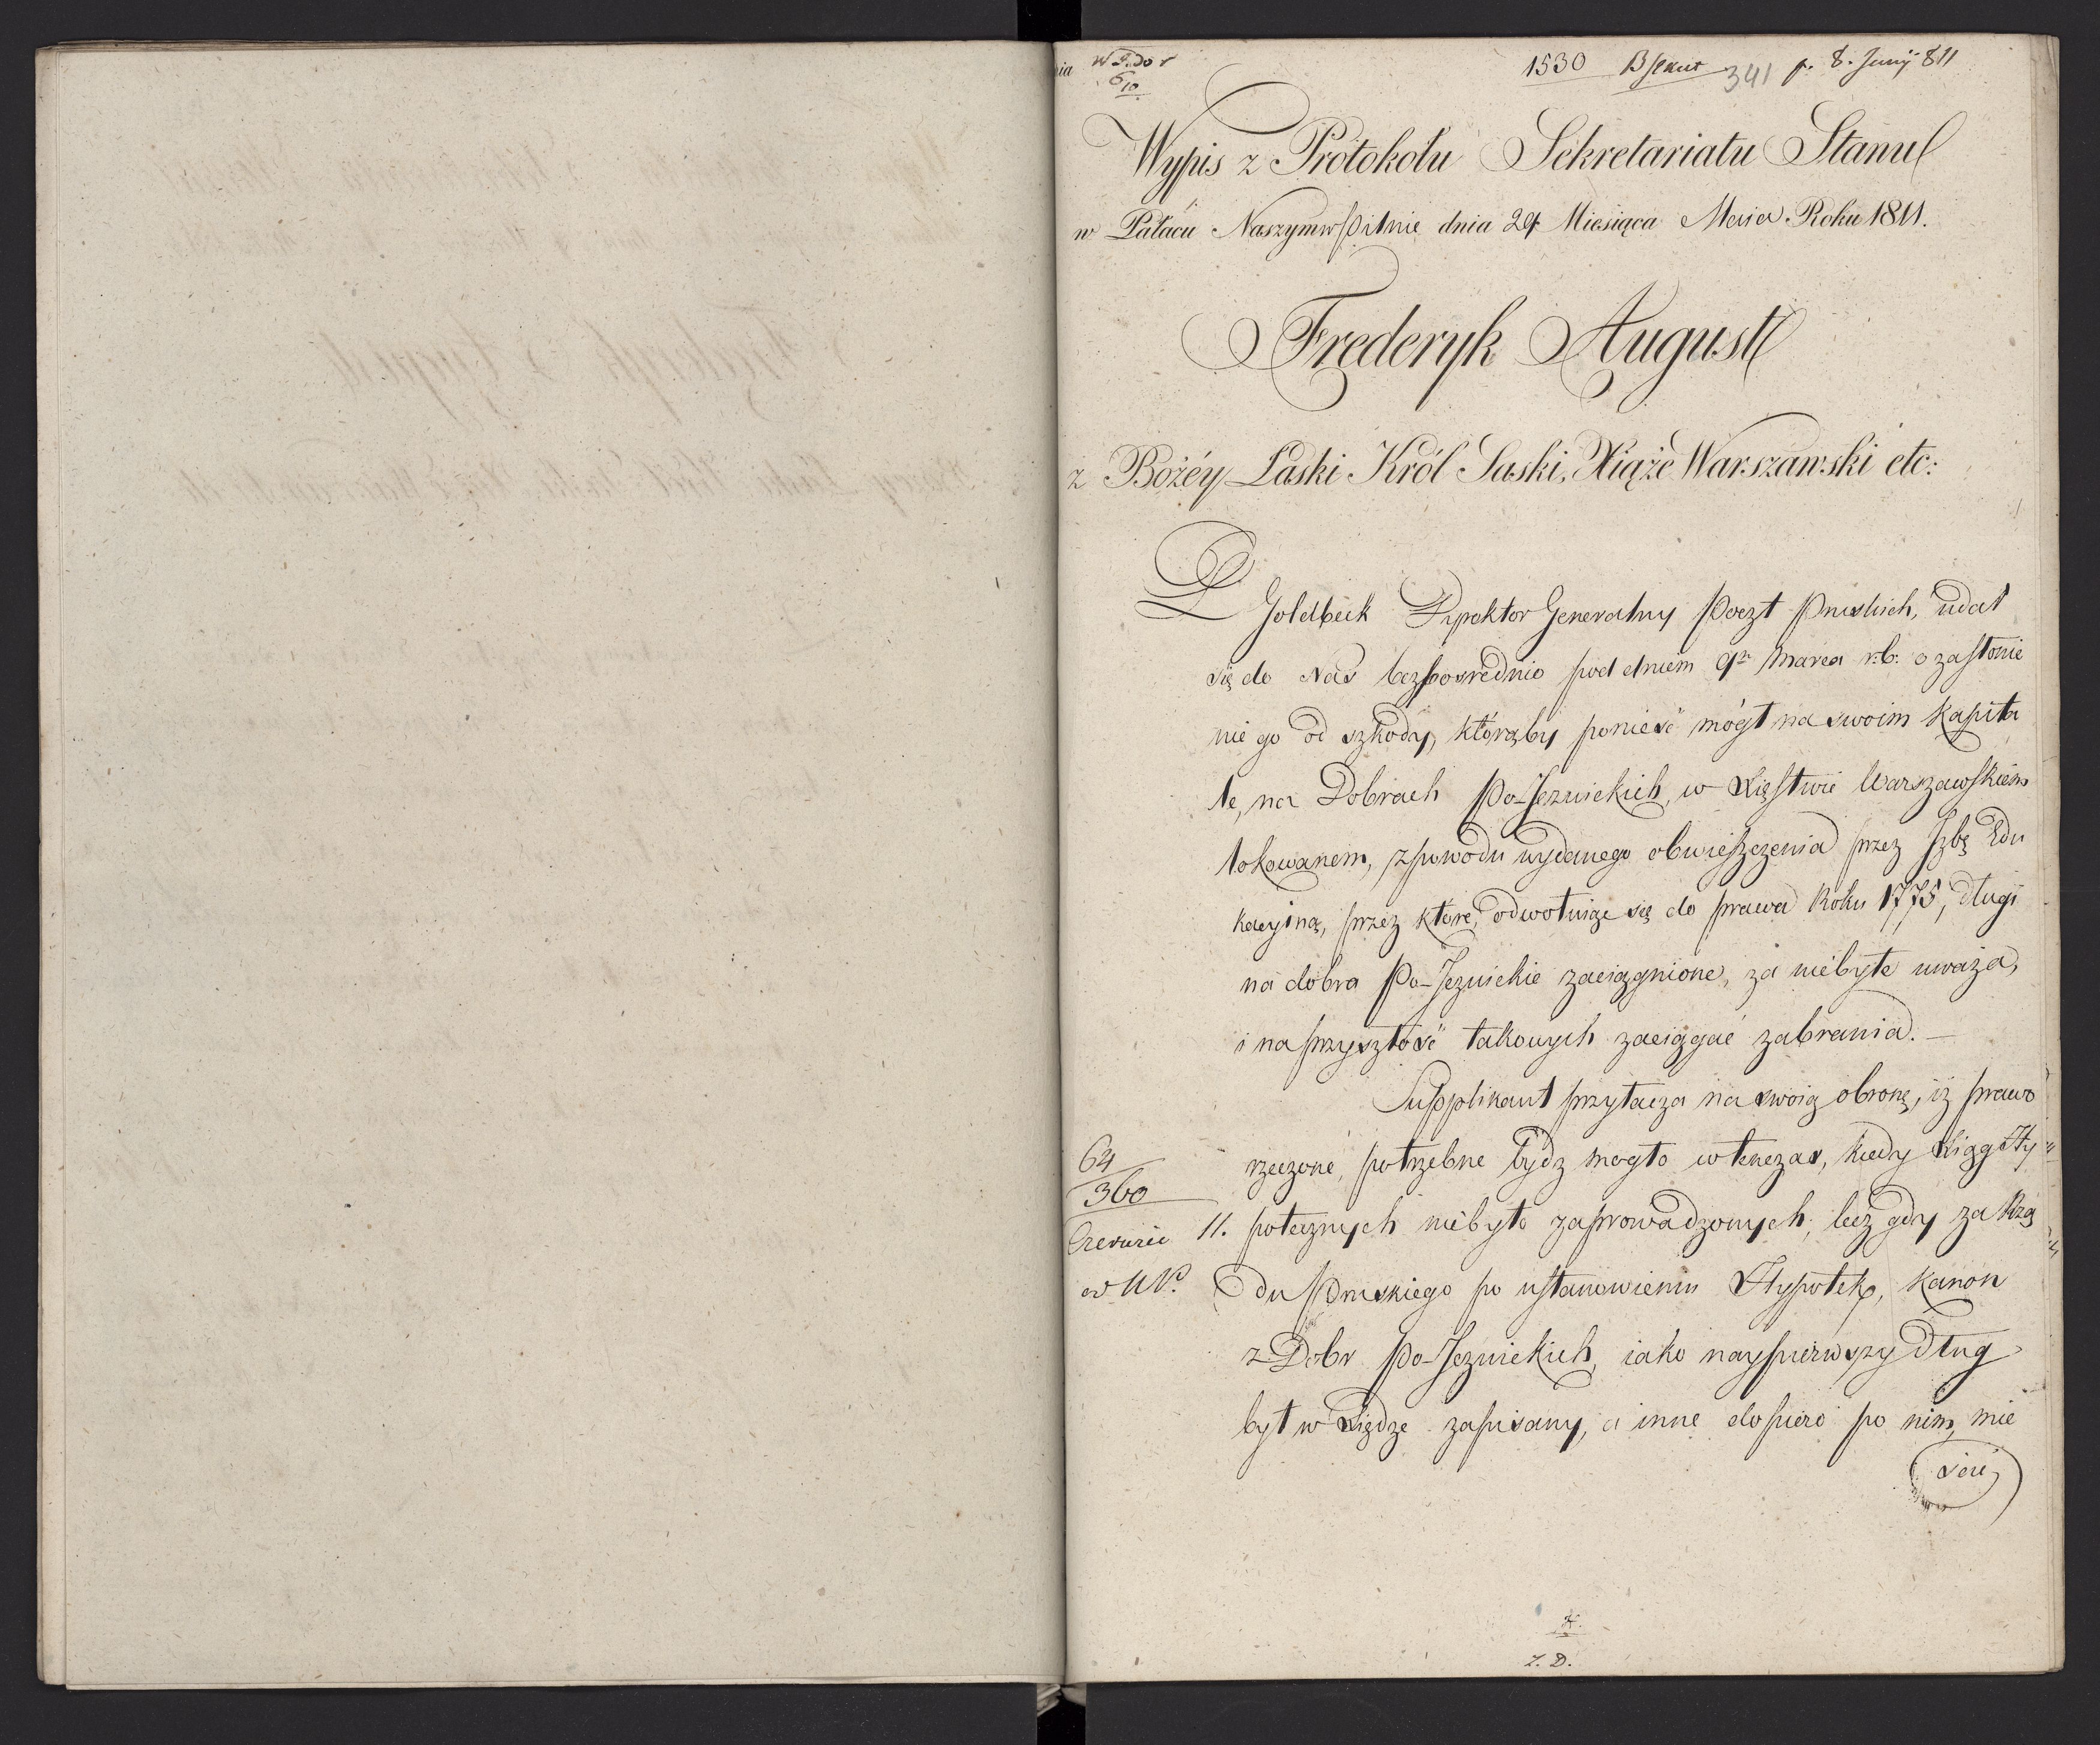 1530 341 p. 8. Junij 811
6/10
Wypis z Protokołu Sekretariatu Stanu
w Pałacu Naszym w Pilnie dnia 24 Miesiąca Maia Roku 1811.
Frederyk August
z Bożéy Łaski Król Saski, Xiąże Warszawski etc:
P. Goldbeck Dyrektor Generalny Poczt Pruskich, udał
się do Nas bezpośrednio pod dniem 9n Marca r:b: o zasłonie
nie go od szkody, którąby ponieść mógł na swoim kapita
le, na Dobrach Po-Jezuickich, w Xięstwie Warszawskiem
lokowanem, z powodu wydanego obwieszczenia przez Izbę Edu
kacyiną, przez które, odwołuiąc się do prawa Roku 1775, długi
na dobra Po-Jezuickie zaciągnione, za niebyłe uważa,
i na przyszłość takowych zaciągać zabrania. —
Supplikant przytacza na swoią obronę, iż prawo
rzeczone, potrzebne bydz mogło wtenczas, kiedy Xiąg Hy
64
360
11. potecznych niebyło zaprowadzonych; lecz gdy za Rzą
du Pruskiego po ustanowieniu Hypotek, kanon
z Dobr Po-Jezuickich, iako naypierwszy Dług
był w Xiędze zapisany, a inne dopiero po nim, mie
ści
Z. D.